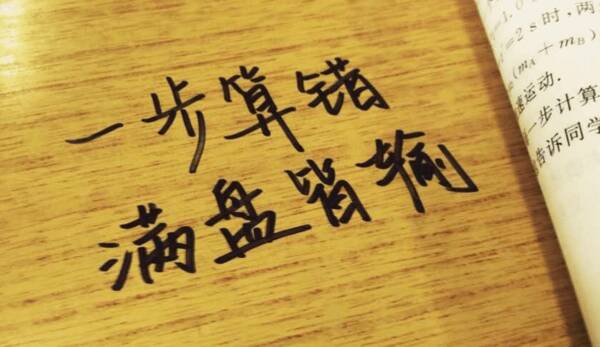 一步算错
满盘皆输
=1.0
=2 s时,两
(mA+mB)
速运动.
一步计算
告诉同学